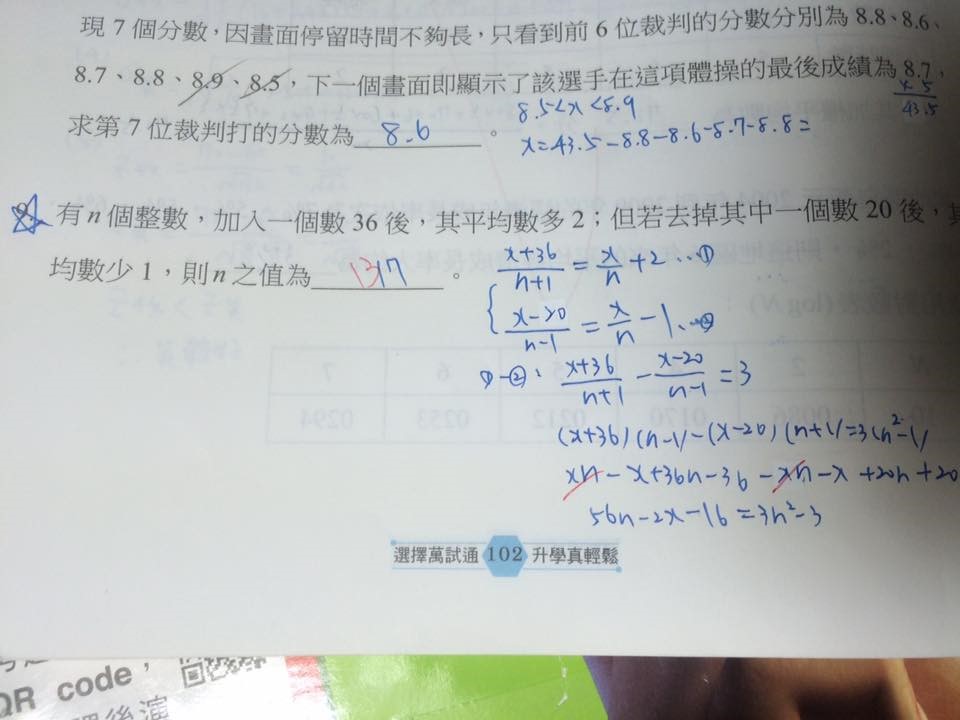 現7個分數，因畫面停留時間不夠長，只看到前6位裁判的分數分別為8.8、8.6、
8.7、8.8、8.9、8.5，下一個畫面即顯示了該選手在這項體操的最後成績為8.7，
x 5
43.5
求第7位裁判打的分數為 8.6 。
8.5<x<8.9
x=43.5-8.8-8.6-8.7-8.8=
9. 有n個整數，加入一個數36後，其平均數多2；但若去掉其中一個數20後，其
均數少1，則n之值為 17 。
x+36/n+1 = x/n +2 …①
x-20/n-1 = x/n -1 …②
①-②: x+36/n+1 - x-20/n-1 = 3
(x+36)(n-1)-(x-20)(n+1)=3(n²-1)
xn-x+36n-36-xn-x+20n+20
56n-2x-16=3n²-3
選擇萬試通 102 升學真輕鬆
QR code，